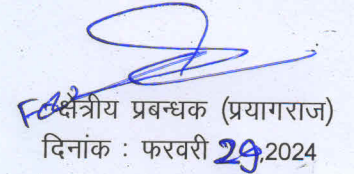 For क्षेत्रीय प्रबन्धक (प्रयागराज)
दिनांक : फरवरी 29,2024